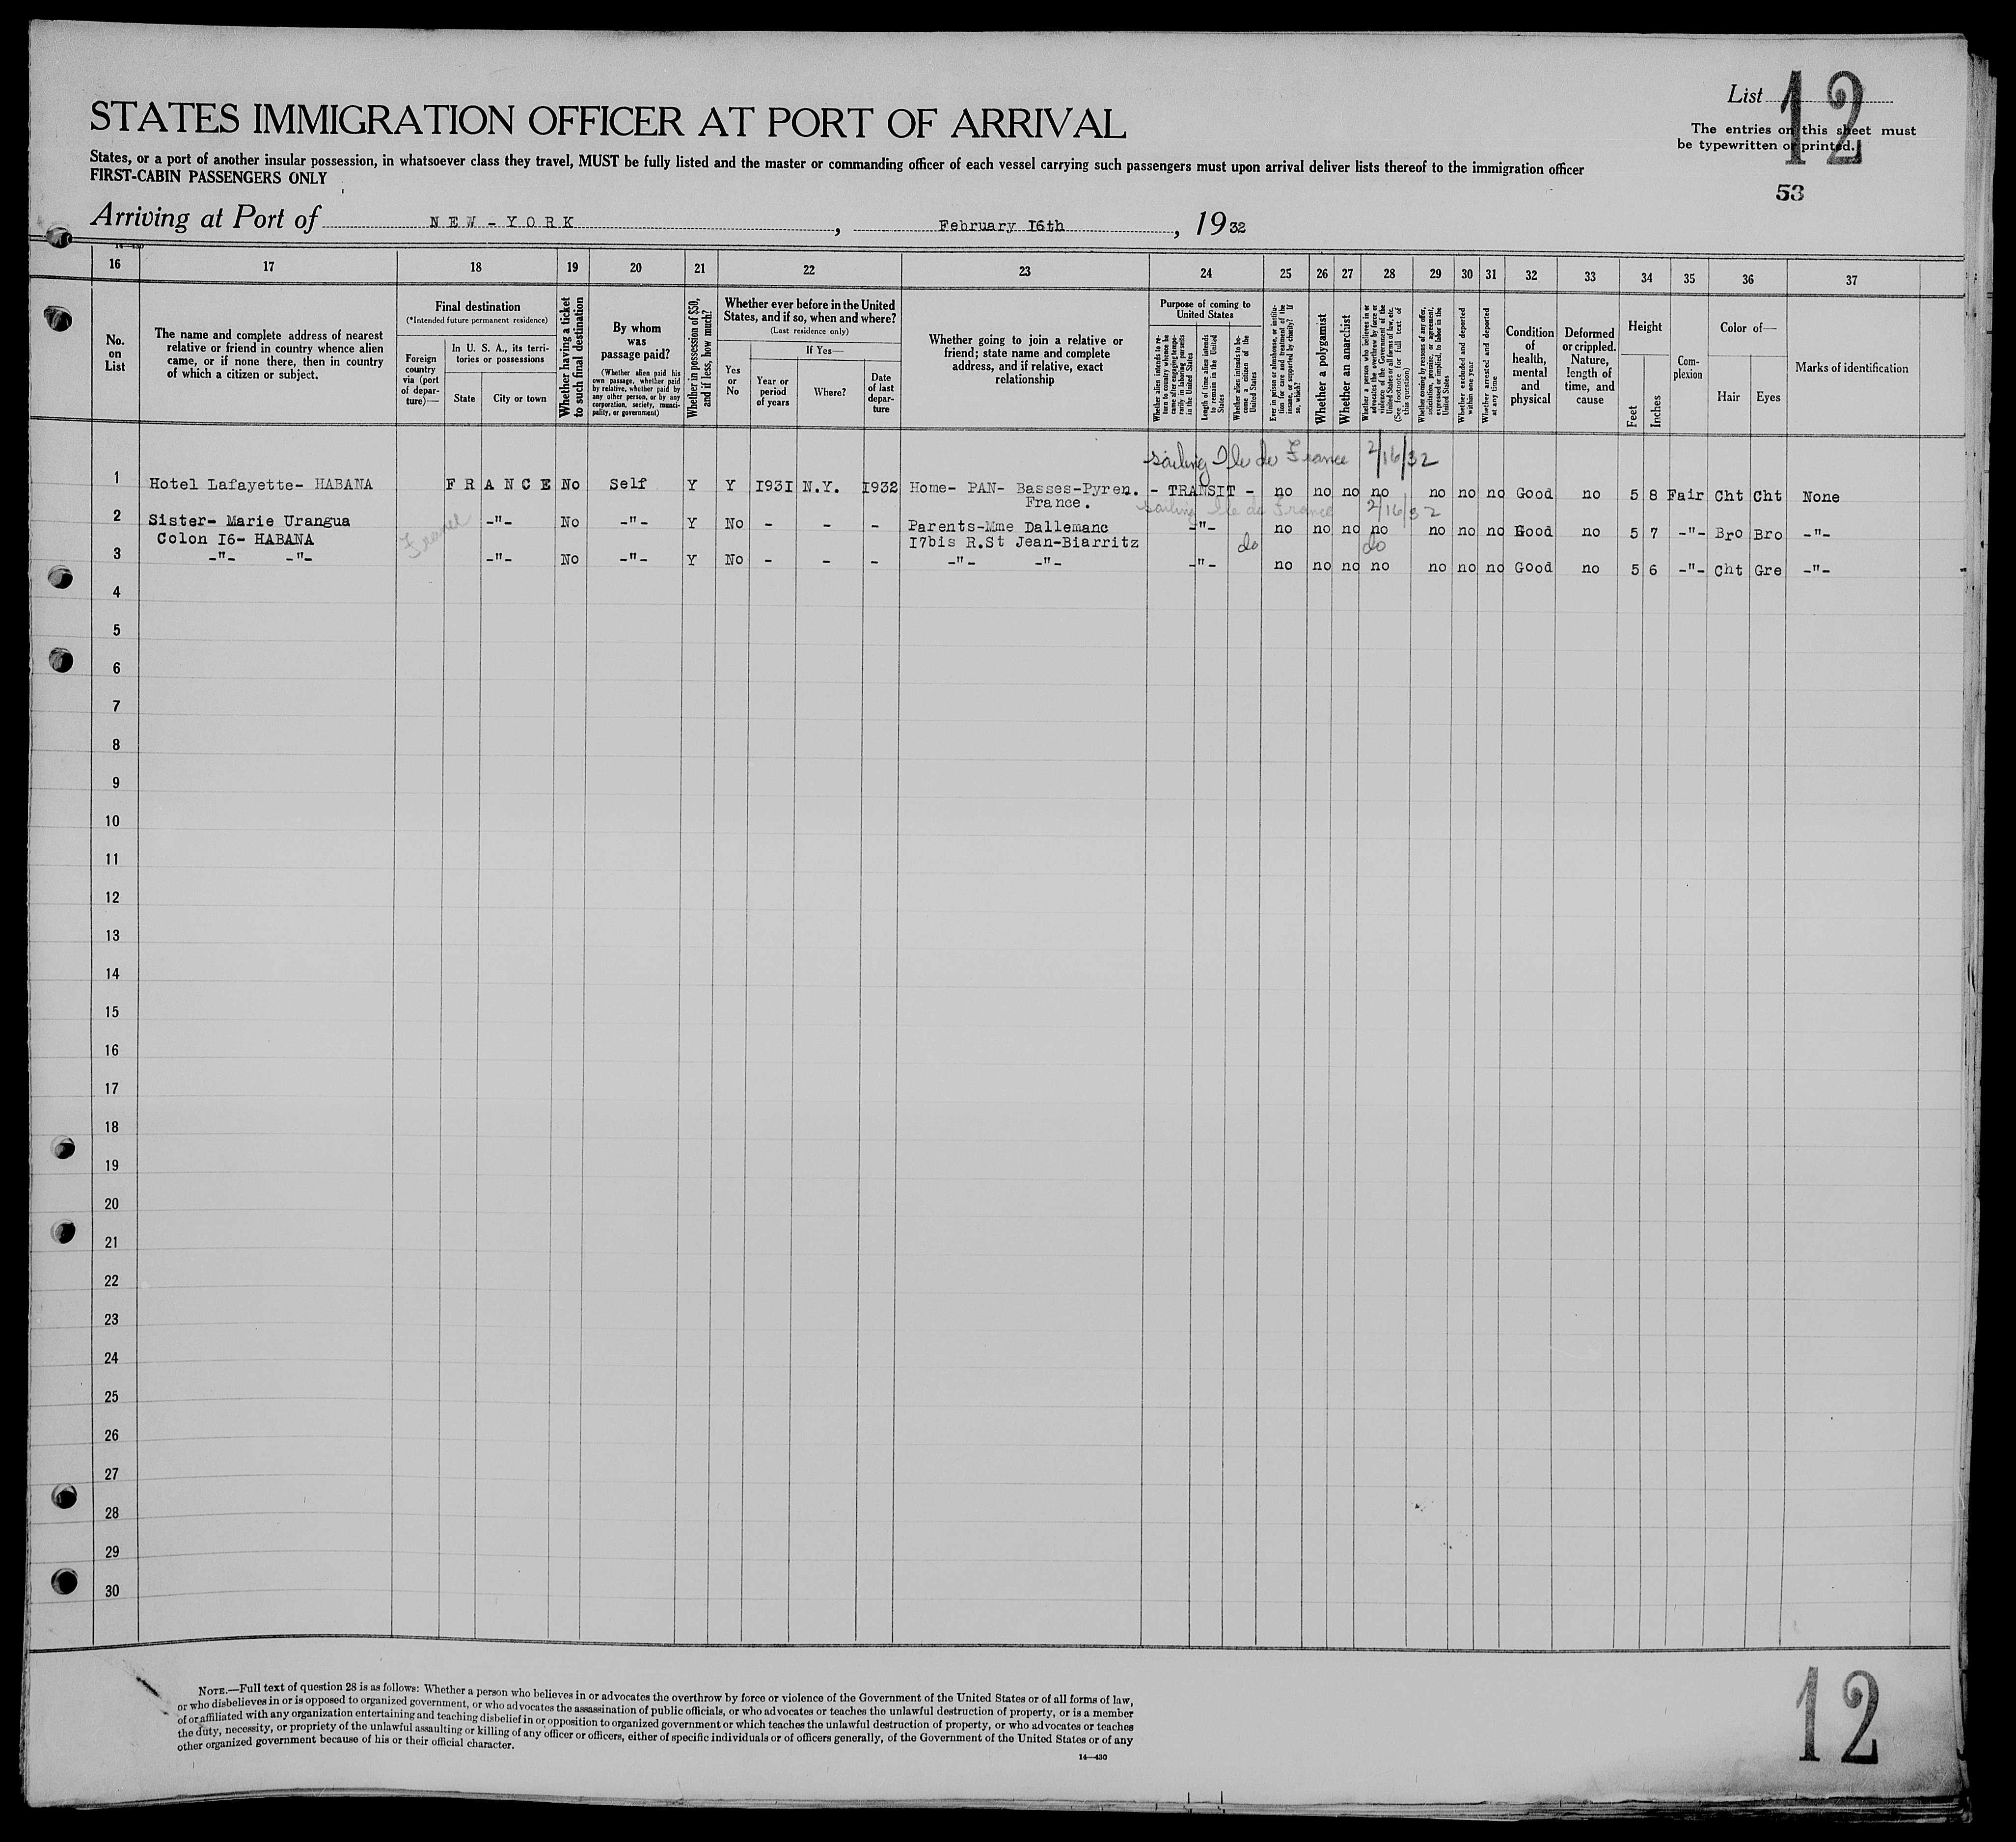 List 12
STATES IMMIGRATION OFFICER AT PORT OF ARRIVAL
The entries on this sheet must
be typewritten or printed.
States, or a port of another insular possession, in whatsoever class they travel, MUST be fully listed and the master or commanding officer of each vessel carrying such passengers must upon arrival deliver lists thereof to the immigration officer
FIRST-CABIN PASSENGERS ONLY
53
Arriving at Port of NEW-YORK, February I6th, 1932
16 17 18 19 20 21 22 23 24 25 26 27 28 29 30 31 32 33 34 35 36 37
No. on List
The name and complete address of nearest
relative or friend in country whence alien
came, or if none there, then in country
of which a citizen or subject.
Final destination
(*Intended future permanent residence)
Foreign country via (port of departure)—
In U. S. A., its territories or possessions
State
City or town
Whether having a ticket to such final destination
By whom was passage paid?
(Whether alien paid his own passage, whether paid by relative, whether paid by any other person, or by any corporation, society, municipality, or government)
Whether in possession of $50, and if less, how much?
Whether ever before in the United States, and if so, when and where?
(Last residence only)
Yes or No
If Yes—
Year or period of years
Where?
Date of last departure
Whether going to join a relative or
friend; state name and complete
address, and if relative, exact
relationship
Purpose of coming to United States
Whether alien intends to return to country whence he came after engaging temporarily in laboring pursuits in the United States
Length of time alien intends to remain in the United States
Whether alien intends to become a citizen of the United States
Ever in prison or almshouse, or institution for care and treatment of the insane, or supported by charity? If so, which?
Whether a polygamist
Whether an anarchist
Whether a person who believes in or advocates the overthrow by force or violence of the Government of the United States or all forms of law, etc. (See footnote for full text of this question)
Whether coming by reasons of any offer, solicitation, promise, or agreement, expressed or implied, to labor in the United States
Whether excluded and deported within one year
Whether arrested and deported at any time
Condition of health, mental and physical
Deformed or crippled. Nature, length of time, and cause
Height
Feet
Inches
Complexion
Color of—
Hair
Eyes
Marks of identification
sailing Ile de France 2/16/32
1 Hotel Lafayette- HABANA FRANCE No Self Y Y I93I N.Y. I932 Home- PAN- Basses-Pyren. - TRANSIT - no no no no no no no Good no 5 8 Fair Cht Cht None
France.
sailing Ile de France 2/16/32
2 Sister- Marie Urangua France -"- No -"- Y No - - - Parents-Mme Dallemanc -"- no no no no no no no Good no 5 7 -"- Bro Bro -"-
Colon I6- HABANA I7bis R.St Jean-Biarritz do do
3 -"- -"- -"- No -"- Y No - - - -"- -"- -"- no no no no no no no Good no 5 6 -"- Cht Gre -"-
4
5
6
7
8
9
10
11
12
13
14
15
16
17
18
19
20
21
22
23
24
25
26
27
28
29
30
NOTE.—Full text of question 28 is as follows: Whether a person who believes in or advocates the overthrow by force or violence of the Government of the United States or of all forms of law,
or who disbelieves in or is opposed to organized government, or who advocates the assassination of public officials, or who advocates or teaches the unlawful destruction of property, or is a member
of or affiliated with any organization entertaining and teaching disbelief in or opposition to organized government or which teaches the unlawful destruction of property, or who advocates or teaches
the duty, necessity, or propriety of the unlawful assaulting or killing of any officer or officers, either of specific individuals or of officers generally, of the Government of the United States or of any
other organized government because of his or their official character.
14—430
12